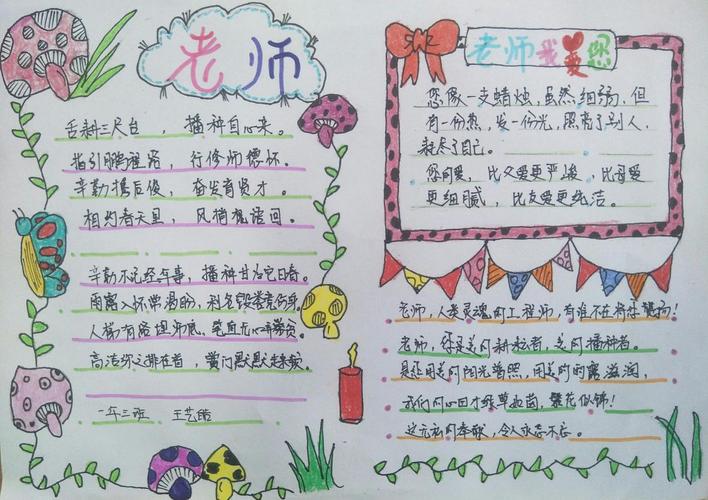 老师
舌耕三尺台，播种自心来。
指引鹏程路，行修师德怀。
辛勤携后俊，奋发育贤才。
相约春天里，风梢桃语回。
辛勤不已经年事，播种甘
雨露入怀
人梯有
高洁
一年三班 王艺皓
老师我爱您
您像一支蜡烛，虽然细弱，但
有一份热，发一份光，照亮了别人，
耗尽了自己。
您的爱，比父爱更严峻，比母爱
更细腻，比友爱更纯洁。
老师，人类灵魂的工程师，有谁不在将您赞扬！
老师，您是美的耕耘者，美的播种者。
是您用美的阳光普照，用美的雨露滋润，
我们的心田才绿草如茵，繁花似锦！
这无私的奉献，令人永志不忘。